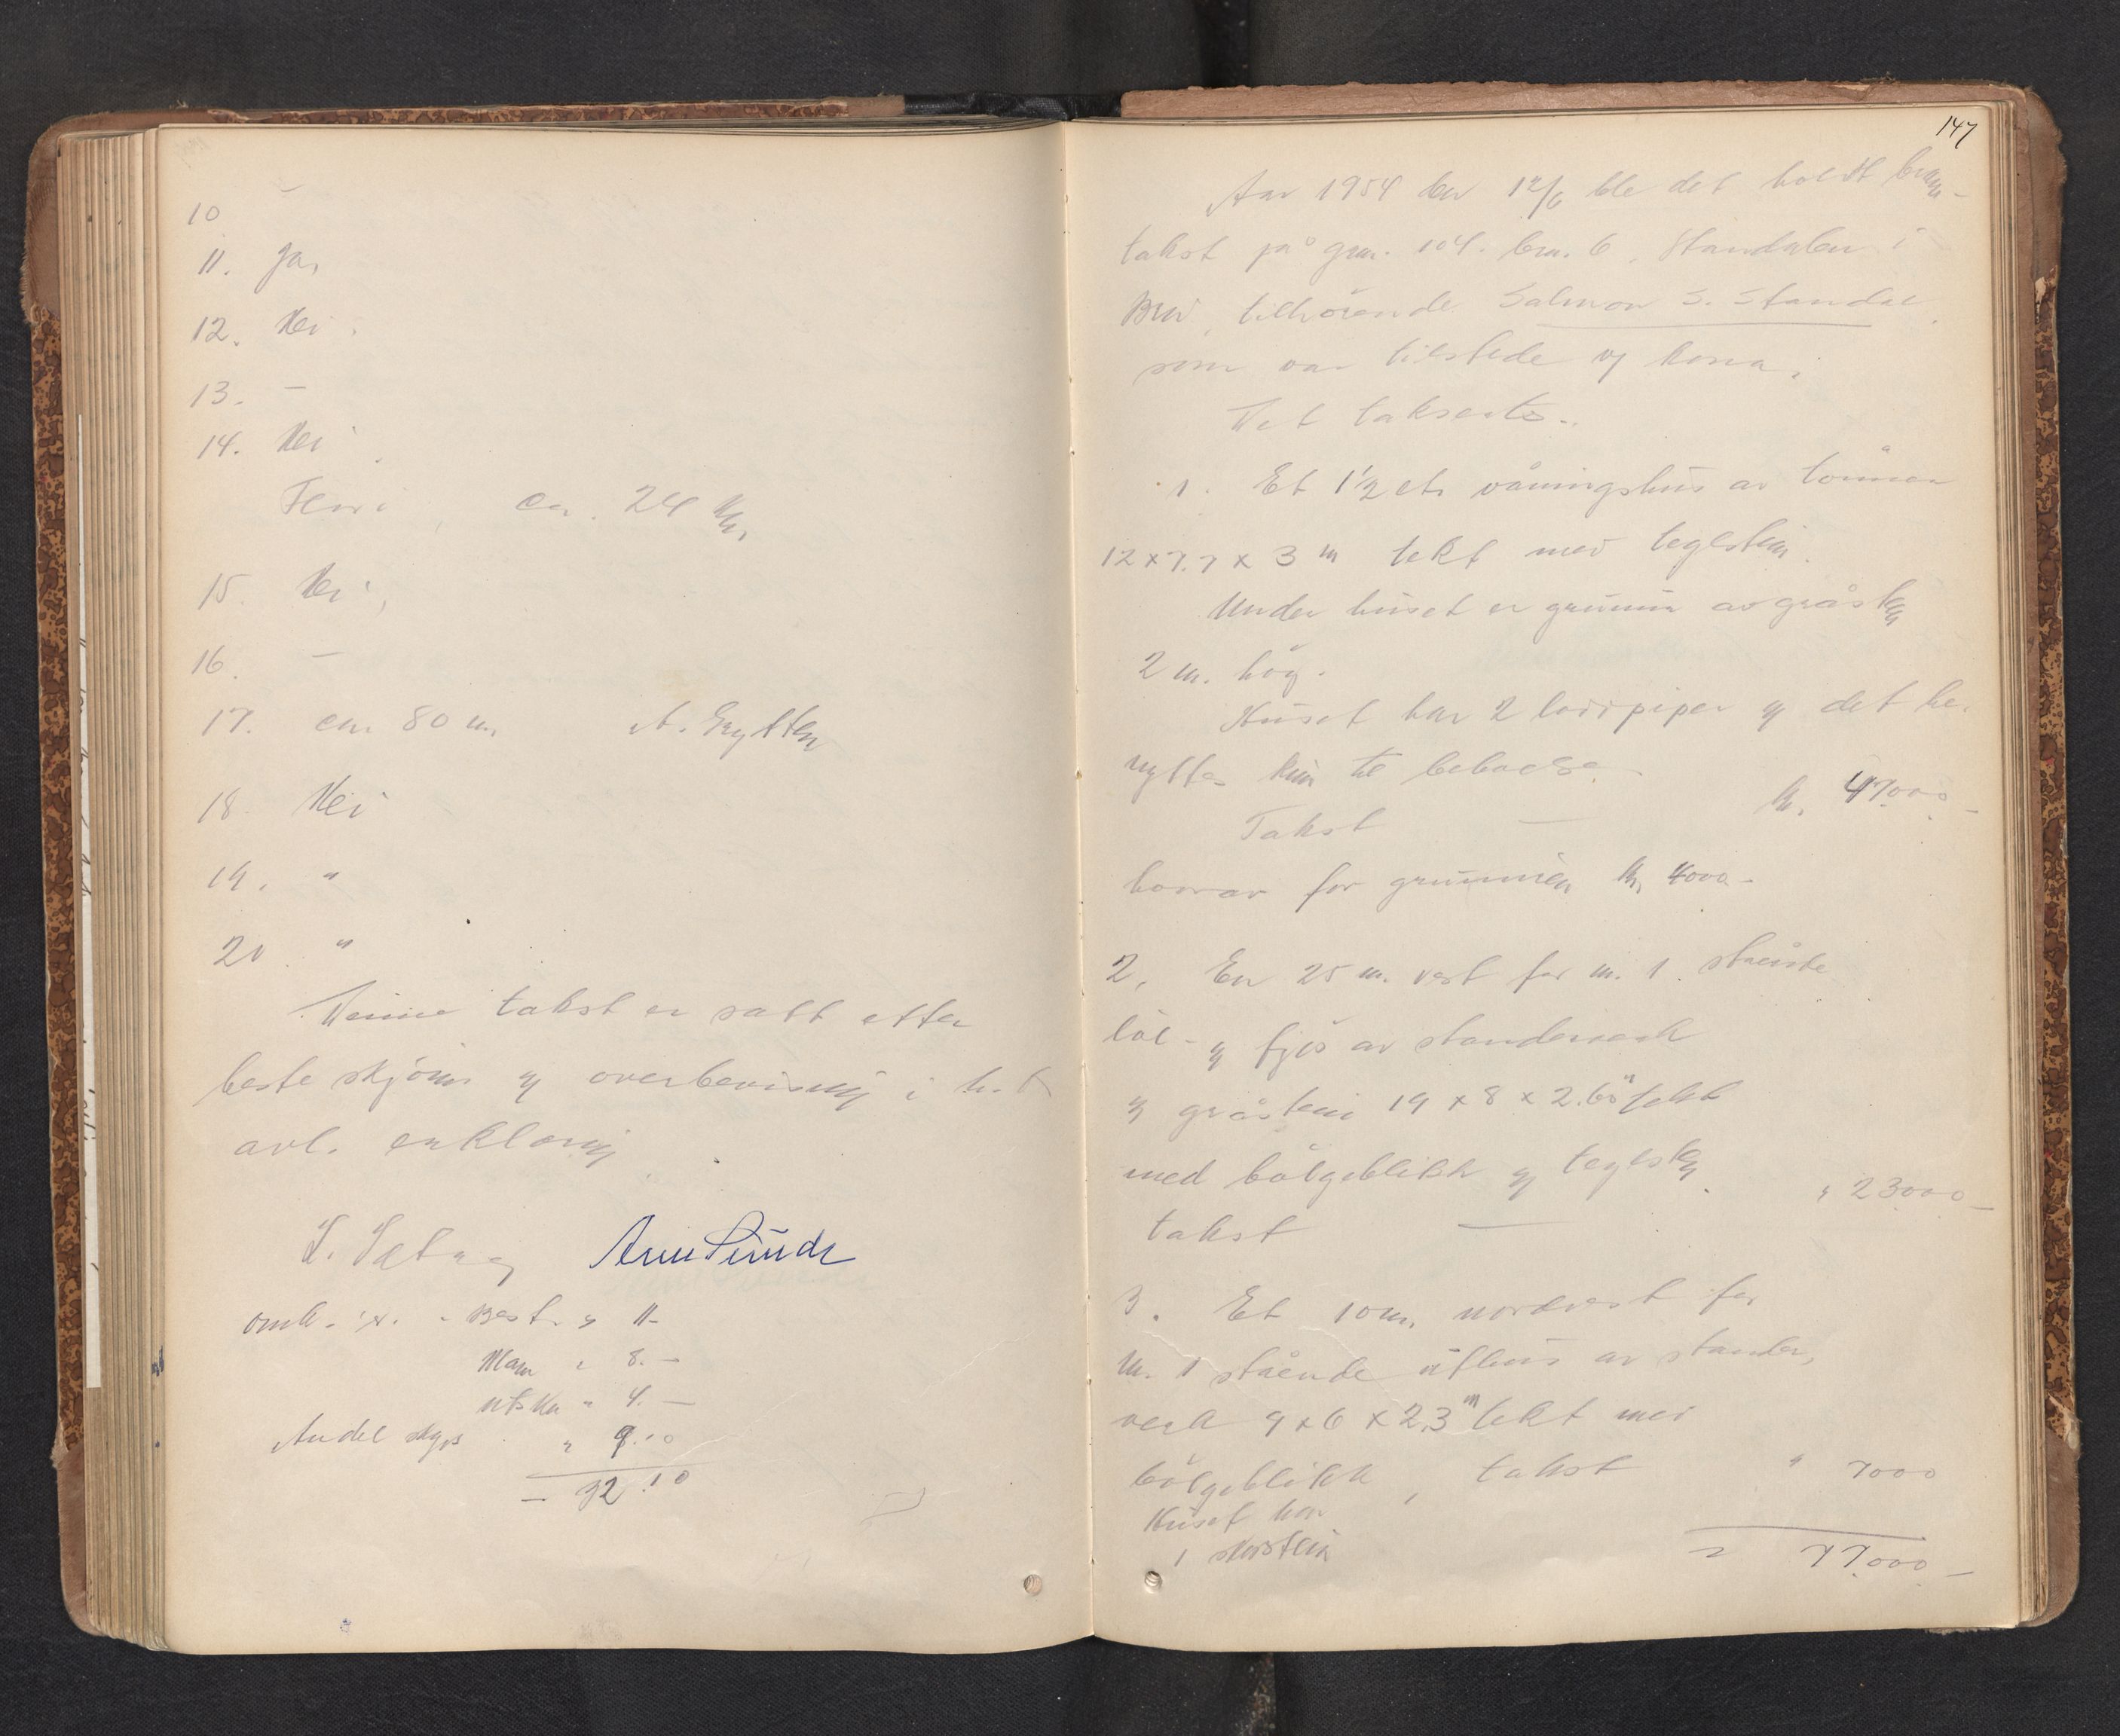 10 –
11. Ja,
12. Nei.
13. –
14. Nei.
ca. 24 km,
15. Nei,
16. –
17. ca. 80 m. A. Grytten
18. Nei
19. "
20 "
Denne takst er satt etter
beste skjönn og overbevisning i h. t
avl. erklæring
S. Sætre Arne Sunde
omk. Best. " 11–
Mann " 8.–
utskr " 4.–
Andel skyss " 9.10
– 32.10
147
Aar 1954 den 12/6 ble det holdt brann-
takst på gnr. 104. bnr. 6, Standalen i
tilhörende Salmon S. Standal
som var tilstede og kona.
Det takserte..
1. Et 1½ ets våningshus av tömmer
12 x 7.7 x 3 m tekt med teglstein.
Under huset er grunnmur av gråstein
2 m. höy.
Huset har 2 piper og det be-
nyttes kun til beboelse.
Takst — kr. 47.000–
hvorav for grunnmuren kr. 4000–
2. En 25 m. vest for nr. 1. stående
löe- og fjös av standerverk
og gråstein 19 x 8 x 2.60 m tekt
med bölgeblikk og teglstein.
takst — " 23000–
3. Et 10 m. nordvest for
nr. 1 stående uthus av stander,
verk 9 x 6 x 2,3 m tekt med
bölgeblikk, takst " 7000
Huset har
1 skorstein
= 77.000–